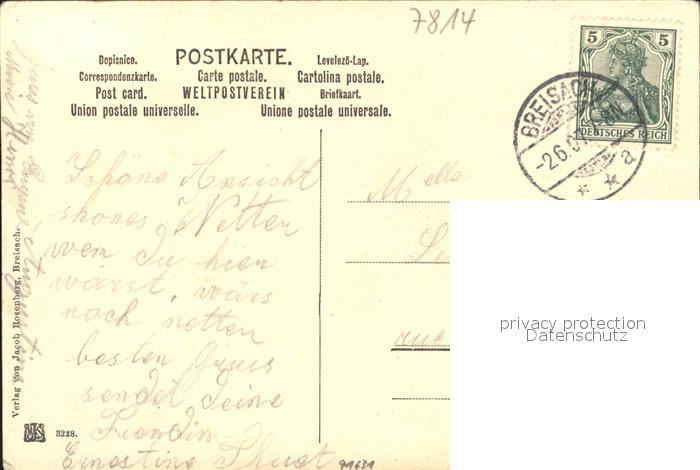 7814
Dopisnice. POSTKARTE. Levelező-Lap.
Correspondenzkarte. Carte postale. Cartolina postale.
Post card. WELTPOSTVEREIN Briefkaart.
Union postale universelle. Unione postale universale.
5 5
DEUTSCHES REICH
BREISACH
-2.6.07
* * a
Schöne Ansicht
shones Wetter
wen Du hier
wärst, wärs
noch netter
besten Gruss
sendet Deine
Freundin
Ernestine
Melle
privacy protection
Datenschutz
Verlag von Jacob Rosenberg, Breisach.
3228.
91631